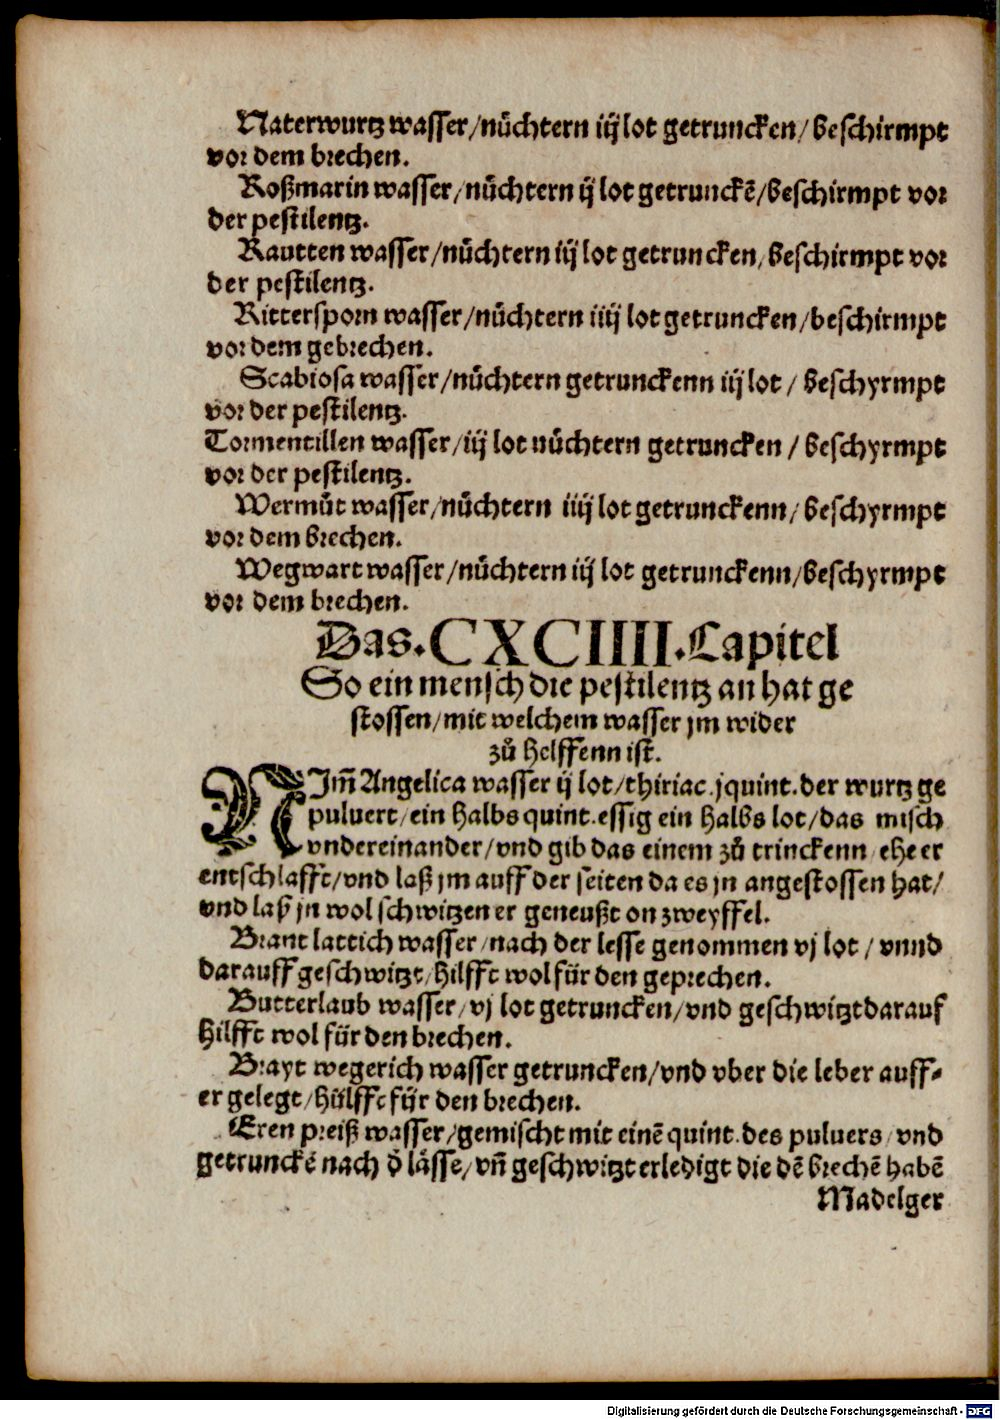 Naterwurtz wasser/nüchtern iij lot getruncken/ beschirmpt
vor dem brechen.
Roßmarin wasser/nüchtern ij lot getrunckē/beschirmpt vor
der pestilentz.
Rautten wasser/nüchtern iij lot getruncken/ beschirmpt vor
der pestilentz.
Rittersporn wasser/nüchtern iiij lot getruncken/beschirmpt
vor dem gebrechen.
Scabiosa wasser/nüchtern getrunckenn iij lot / beschyrmpt
vor der pestilentz.
Tormentillen wasser/iij lot nüchtern getruncken / beschyrmpt
vor der pestilentz.
Wermůt wasser/nüchtern iiij lot getrunckenn/ beschyrmpt
vor dem brechen.
Wegwart wasser/nüchtern iij lot getrunckenn/beschyrmpt
vor dem brechen.
Das.CXCIIII.Capitel
So ein mensch die pestilentz an hat ge
stossen/mit welchem wasser jm wider
zů helffenn ist.
NJm̄ Angelica wasser ij lot/thiriac.j quint.der wurtz ge
puluert/ein halbs quint.essig ein halbs lot/das misch
vndereinander/vnd gib das einem zů trinckenn/ehe er
entschlafft/vnd laß jm auff der seiten da es jn angestossen hat/
vnd laß jn wol schwitzen er geneußt on zweyffel.
Brant lattich wasser/nach der lesse genommen vj lot / vnnd
darauff geschwitzt/hilfft wol für den geprechen.
Butterlaub wasser/vj lot getruncken/vnd geschwitzt darauf
hilfft wol für den brechen.
Brayt wegerich wasser getruncken/vnd vber die leber auff-
er gelegt/hülfft für den brechen.
Eren preiß wasser/gemischt mit einē quint.des puluers/vnd
getrunckē nach d̄ lässe/vn̄ geschwitzt erledigt die dē brechē habē
Madelger
Digitalisierung gefördert durch die Deutsche Forschungsgemeinschaft - DFG